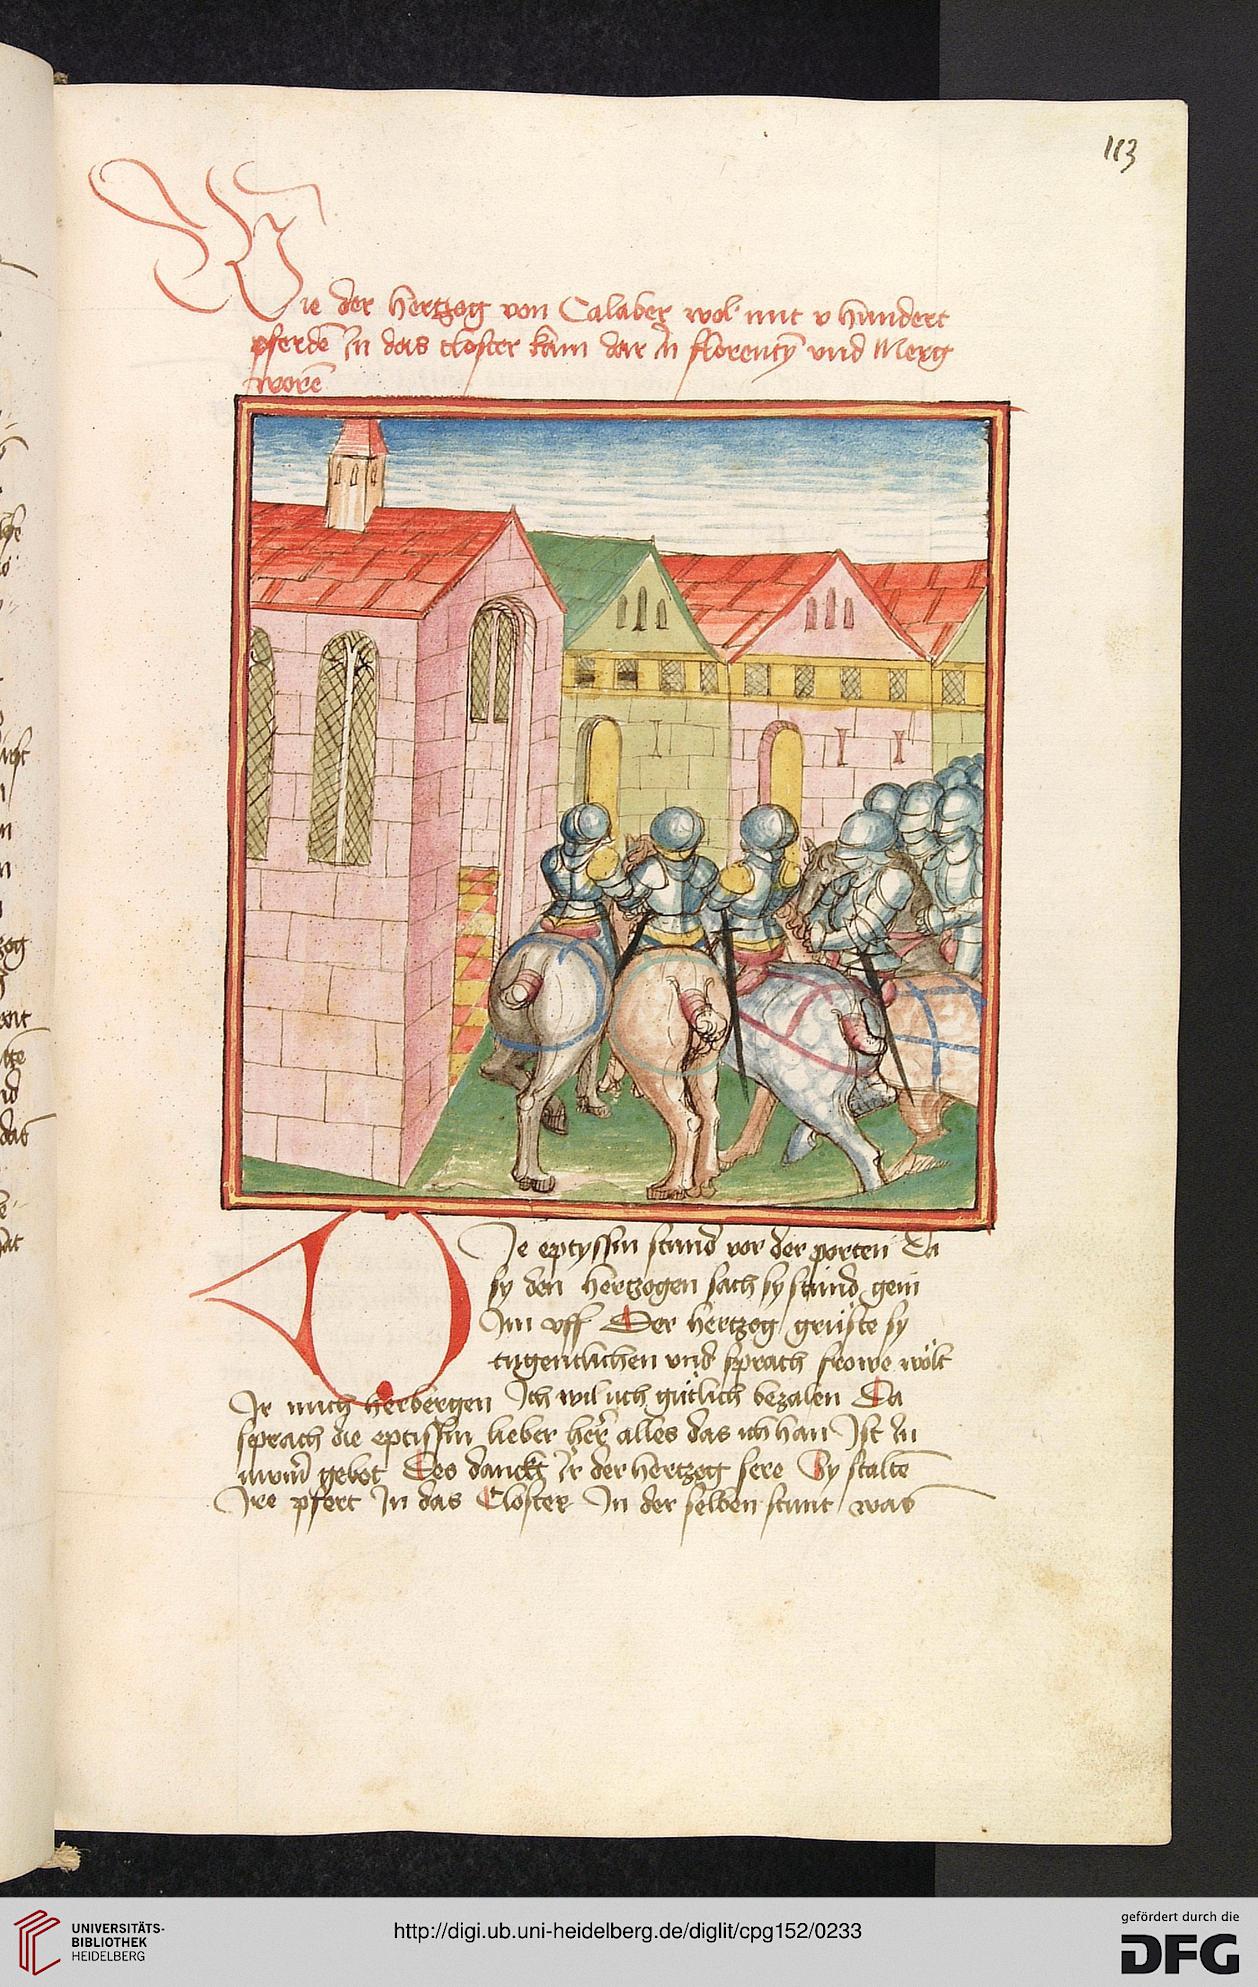 113
Wie der hertzog von Calaber wol mit v hundert
pferdē In das closter kam dar Iñ florentÿ und Merg
worē
Die eptyssin stund vor der porten Da
sy den hertzogen sach sy stund gein
Im vff Der hertzog grüste sy
tugentlichen und sprach frowe wölt
Ir mich herbergen Ich wil uch gütlich bezalen Da
sprach die eptissin lieber her alles das ich han Ist In
uwerm gebot Des danckt Ir der hertzog sere Sy stalte
Ire pfert In das Closter In der selben stunt was
UNIVERSITÄTS-
BIBLIOTHEK
HEIDELBERG
http://digi.ub.uni-heidelberg.de/diglit/cpg152/0233
gefördert durch die
DFG